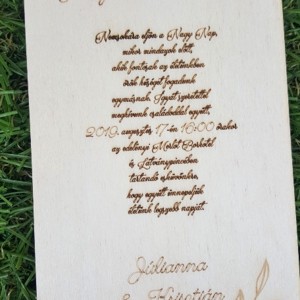 Nemsokára eljön a Nagy Nap,
mikor mindazok előtt,
akik fontosak az életünkben
örök hűséget fogadunk
egymásnak. Együtt szeretettel
meghívunk családoddal együtt,
2019. augusztus 17-én 16:00 órakor
az edelényi Merlot Borhotel
és Látványpincében
tartandó esküvőnkre,
hogy együtt ünnepeljük
életünk legszebb napját.
Julianna
&
Krisztián